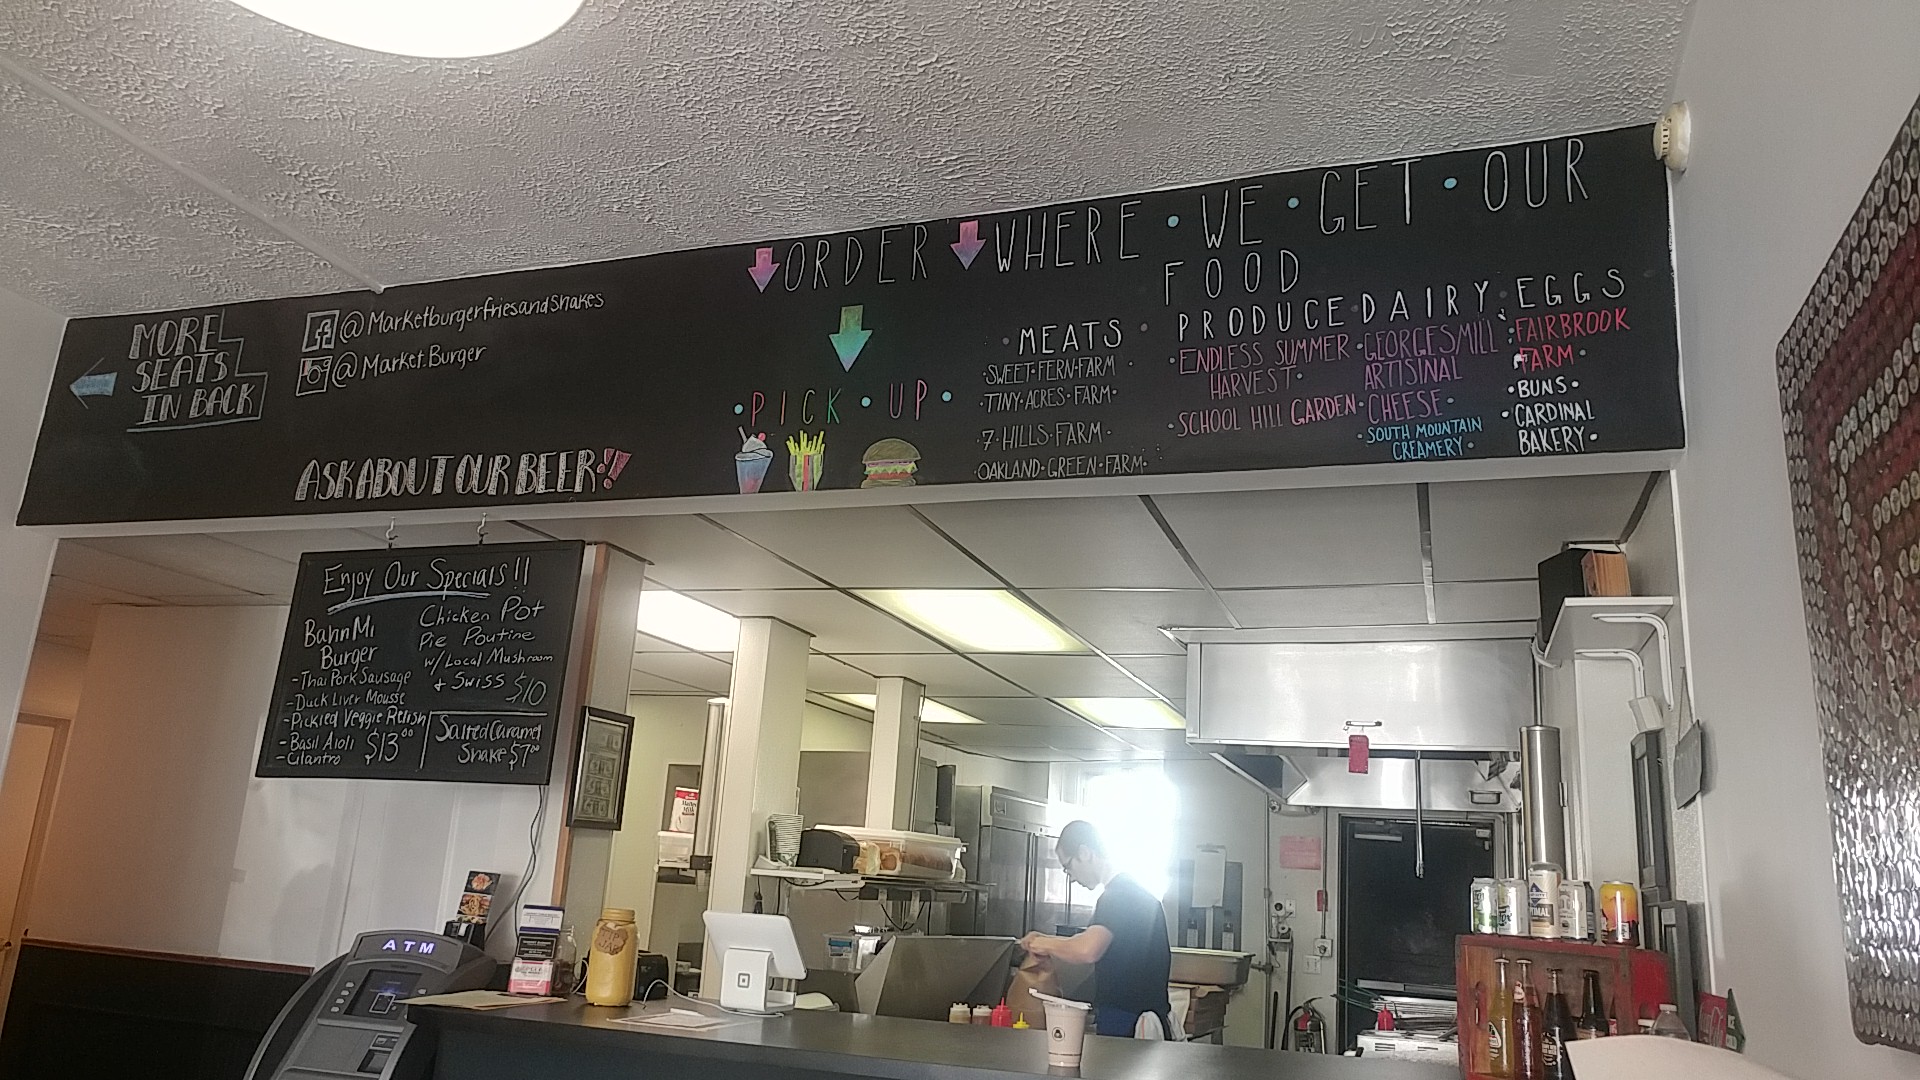 MORE
SEATS
IN BACK
@Marketburgerfriesandshakes
@Market.Burger
ASK ABOUT OUR BEER!!
ORDER
•PICK•UP•
WHERE•WE•GET•OUR
FOOD
•MEATS•
•SWEET•FERN•FARM•
•TINY•ACRES•FARM•
•7•HILLS•FARM•
•OAKLAND•GREEN•FARM•
PRODUCE
•ENDLESS SUMMER
HARVEST•
•SCHOOL HILL GARDEN•
DAIRY
•GEORGES MILL
ARTISINAL
CHEESE•
•SOUTH MOUNTAIN
CREAMERY•
EGGS
•FAIRBROOK
FARM•
•BUNS•
•CARDINAL
BAKERY•
Enjoy Our Specials!!
BahnMi
Burger
-Thai Pork Sausage
-Duck Liver Mousse
-Pickled Veggie Relish
-Basil Aioli
-Cilantro
$13.00
Chicken Pot
Pie Poutine
w/Local Mushroom
+ Swiss $10
Salted Caramel
Shake $7.00
ATM